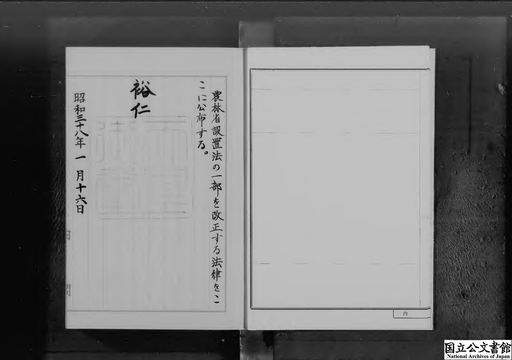 農林省設置法の一部を改正する法律をこ
こに公布する。
裕仁
昭和三十八年一月十六日
国立公文書館
National Archives of Japan